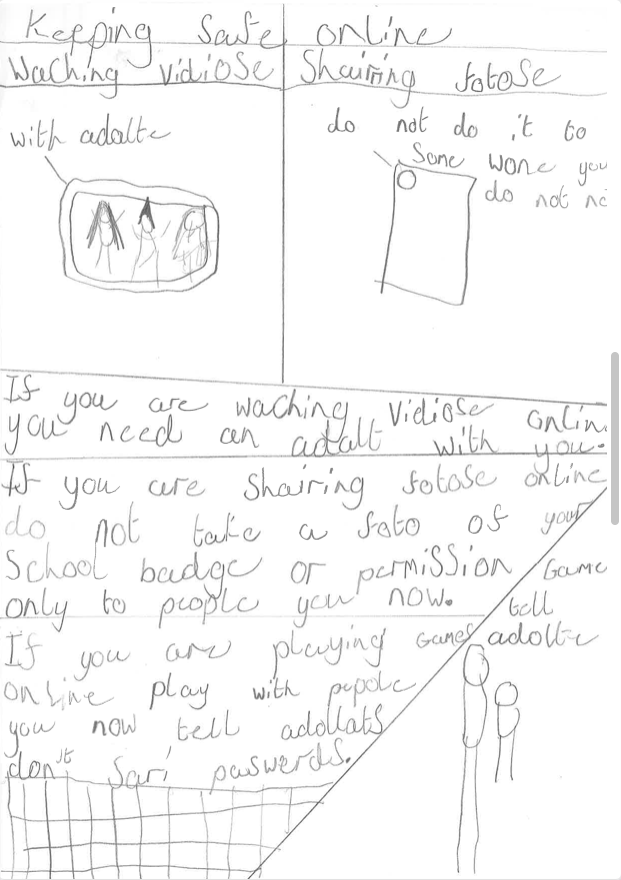 Keeping safe online
Waching vidiose
Shairing fotose
with adalte
do not do it to
Some wone you
do not no
If you are waching vidiose onlin
you need an adalt with you.
If you are shairing fotose online
do not take a foto of your
School badge or permission
only to people you now.
Game
tell
adolte
If you are playing games
online play with pepole
you now tell adollats
don't Sari paswerds.